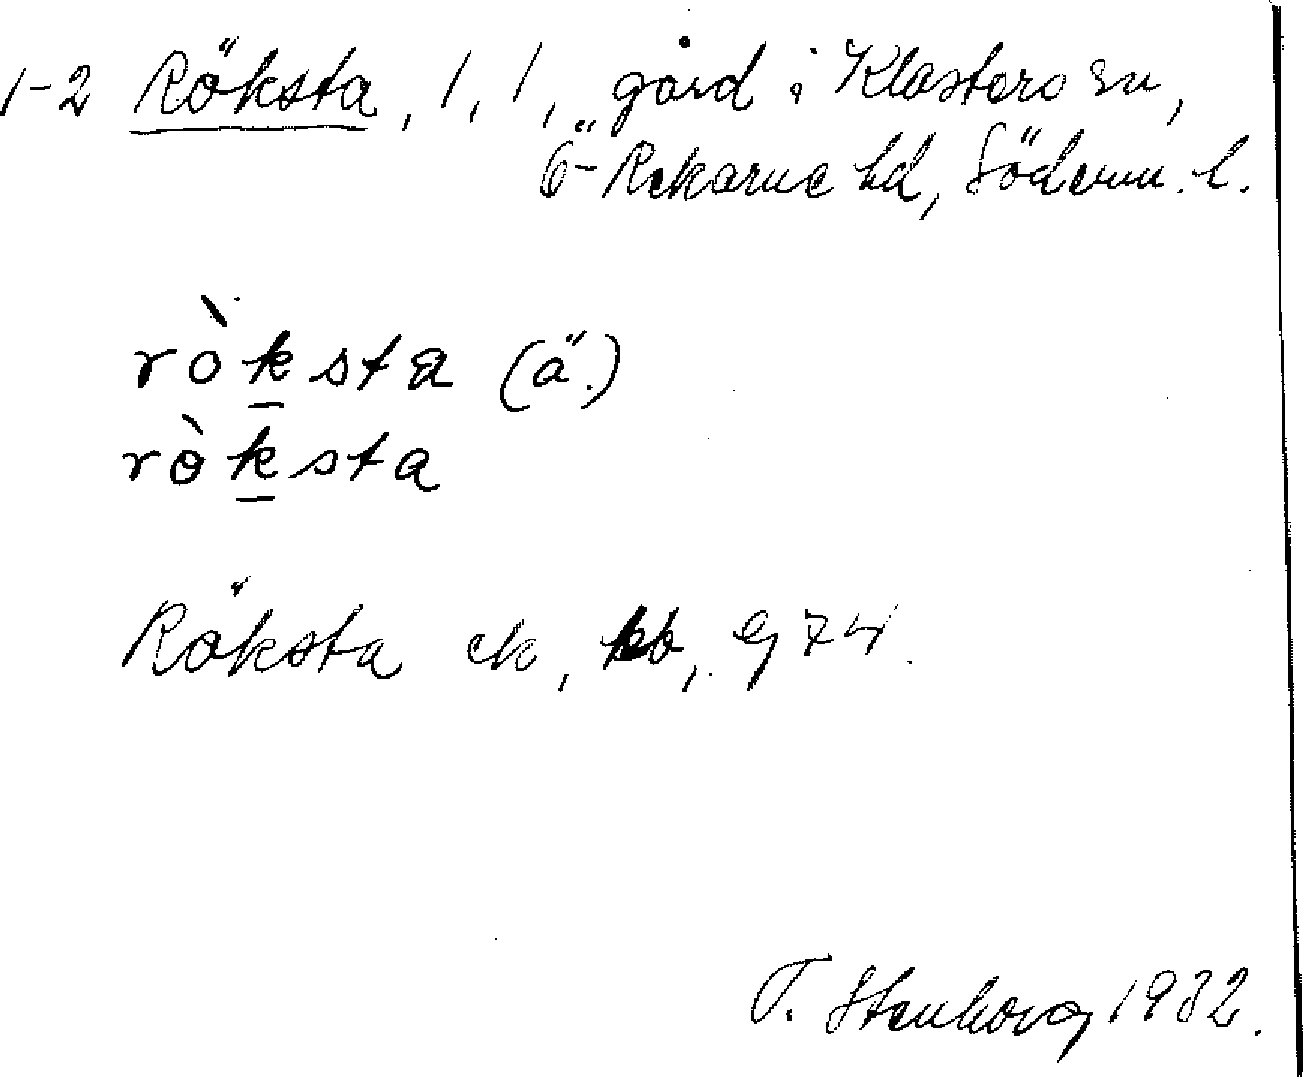 1-2 Röksta, 1, 1, gård i Klosters sn,
Ö-Rekarne hd, Söderm. l.
ròksta (ä.)
ròksta
Röksta ek, kb, G 74.
T. Stenborg 1932.